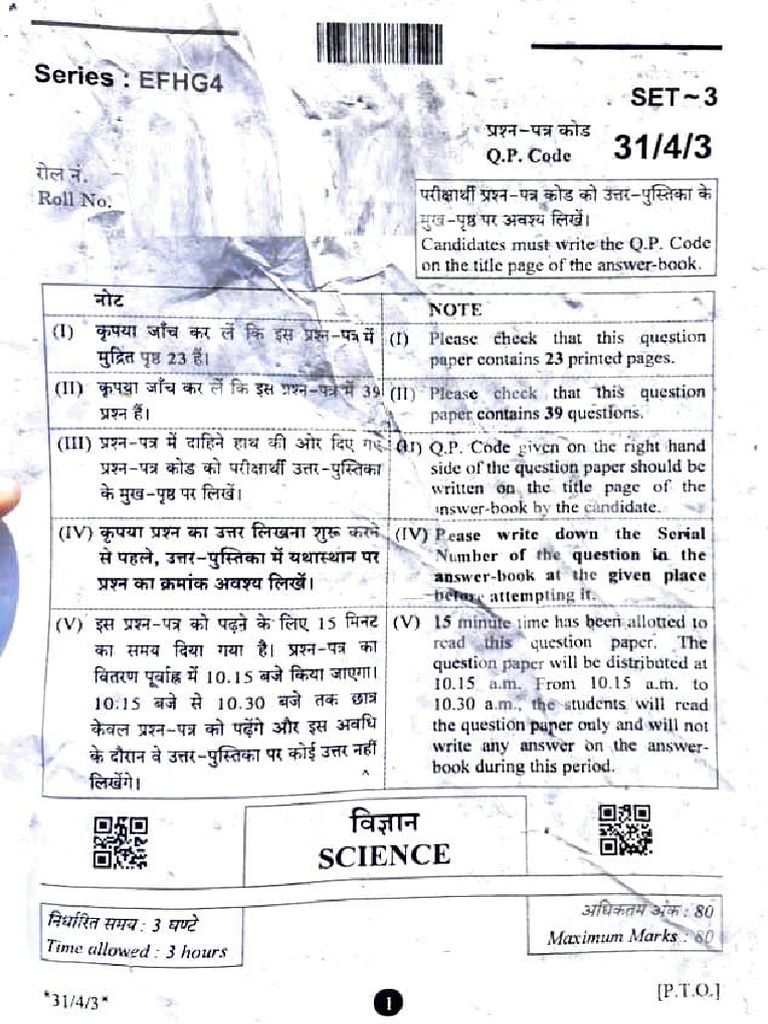 Series : EFHG4
SET ~ 3
प्रश्न-पत्र कोड
Q.P. Code 31/4/3
रोल नं.
Roll No.
परीक्षार्थी प्रश्न-पत्र कोड को उत्तर-पुस्तिका के
मुख-पृष्ठ पर अवश्य लिखें।
Candidates must write the Q.P. Code
on the title page of the answer-book.
नोट
(I) कृपया जाँच कर लें कि इस प्रश्न-पत्र में
मुद्रित पृष्ठ 23 हैं।
(II) कृपया जाँच कर लें कि इस प्रश्न-पत्र में 39
प्रश्न हैं।
(III) प्रश्न-पत्र में दाहिने हाथ की ओर दिए गए
प्रश्न-पत्र कोड को परीक्षार्थी उत्तर-पुस्तिका
के मुख-पृष्ठ पर लिखें।
(IV) कृपया प्रश्न का उत्तर लिखना शुरू करने
से पहले, उत्तर-पुस्तिका में यथास्थान पर
प्रश्न का क्रमांक अवश्य लिखें।
(V) इस प्रश्न-पत्र को पढ़ने के लिए 15 मिनट
का समय दिया गया है। प्रश्न-पत्र का
वितरण पूर्वाह्न में 10.15 बजे किया जाएगा।
10.15 बजे से 10.30 बजे तक छात्र
केवल प्रश्न-पत्र को पढ़ेंगे और इस अवधि
के दौरान वे उत्तर-पुस्तिका पर कोई उत्तर नहीं
लिखेंगे।
NOTE
(I) Please check that this question
paper contains 23 printed pages.
(II) Please check that this question
paper contains 39 questions.
II) Q.P. Code given on the right hand
side of the question paper should be
written on the title page of the
answer-book by the candidate.
(IV) Please write down the Serial
Number of the question in the
answer-book at the given place
before attempting it.
(V) 15 minute time has been allotted to
read this question paper. The
question paper will be distributed at
10.15 a.m. From 10.15 a.m. to
10.30 a.m., the students will read
the question paper only and will not
write any answer on the answer-
book during this period.
विज्ञान
SCIENCE
निर्धारित समय : 3 घण्टे
Time allowed : 3 hours
अधिकतम अंक : 80
Maximum Marks : 80
*31/4/3*
1
[P.T.O.]